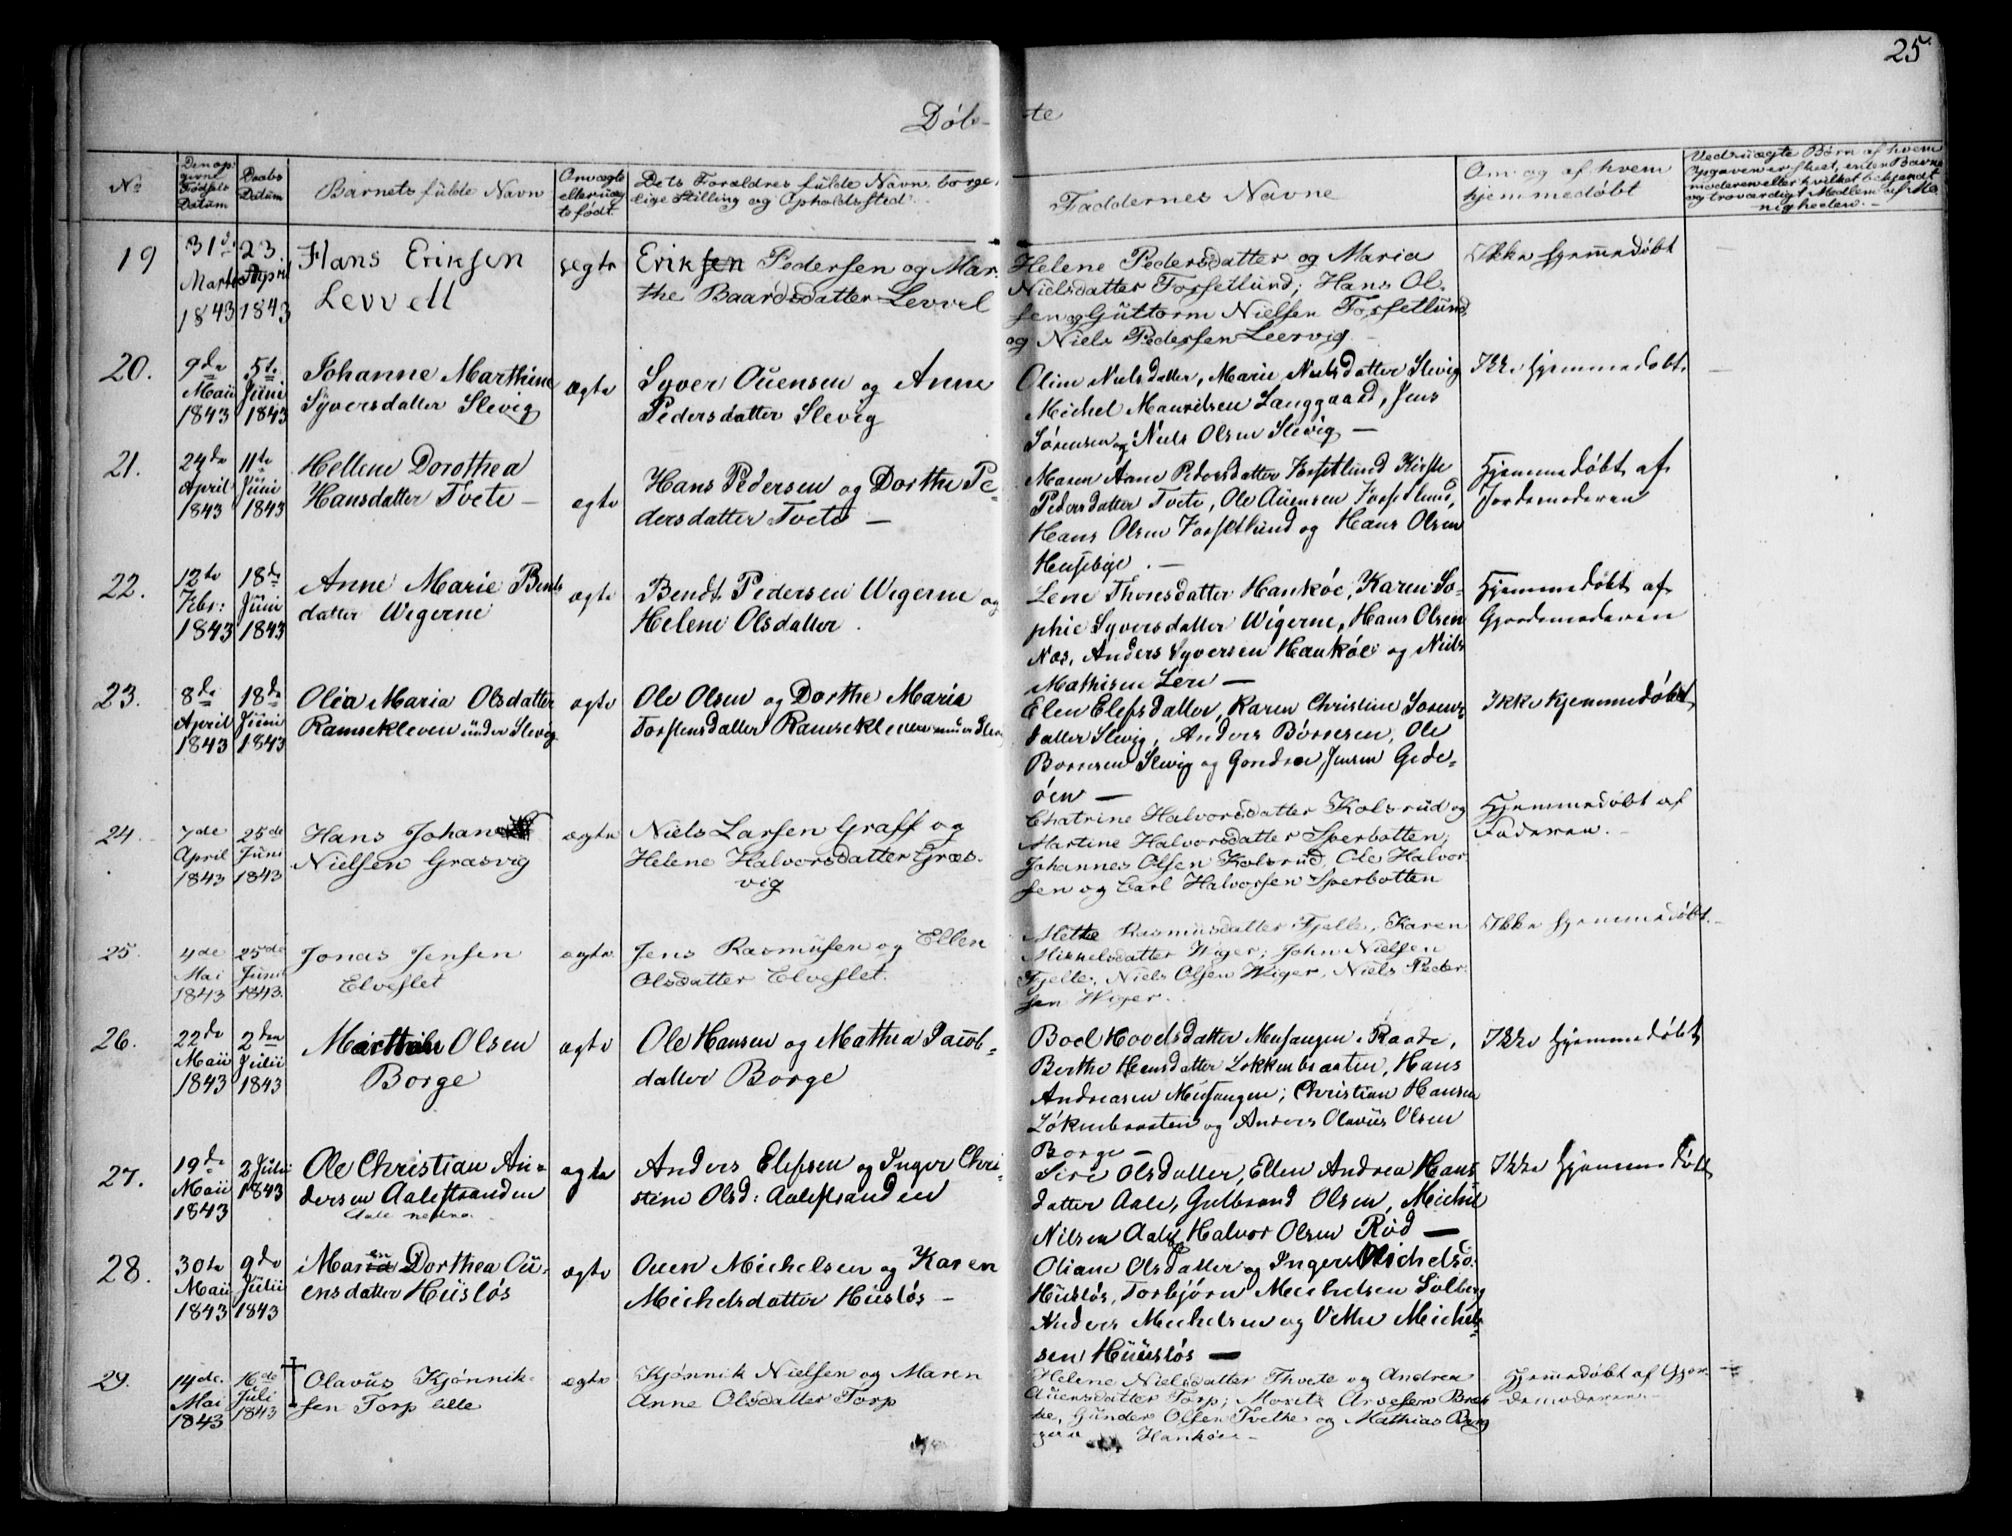 25
Døb-te
No
Den op-
givne
Fødsels
Datum
Daabs
Datum
Barnets fulde Navn
Om ægte
eller uæg
te født
Dets Forældres fulde Navn, borger
lige Stilling og Opholdssted
Faddernes Navne
Om og af hvem
hjemmedøbt
Ved uægte Børn af hvem
Opgaven er skeet, enten Barne
moderen eller hvilket bekjendt
og troværdigt Medlem af Me
nigheden.
19
31te
Marts
1843
23
April
1843
Hans Eriksen
Levvell
ægte
Eriksen Pedersen og Mar-
the Baardsdatter Levvel
Helene Pedersdatter og Maria
Nielsdatter Forsetlund; Hans Ol-
sen og Guttorm Nielsen Forsetlund
og Niels Pedersen Leervig
Ikke hjemmedøbt
20.
9de
Maii
1843
5te
Juni
1843
Johanne Marthine
Syversdatter Slevig
ægte
Syver Ouensen og Anne
Pedersdatter Slevig
Oline Nielsdatter, Marie Nielsdatter Slevig
Michel Mauritsen Langgaard, Jens
Sørensen og Niels Olsen Slevig —
Ikke hjemmedøbt.
21.
24de
April
1843
11te
Juni
1843
Hellene Dorothea
Hansdatter Tvete —
ægte
Hans Pedersen og Dorthe Pe-
dersdatter Tvete —
Maren Anne Pedersdatter Forsetlund Kirste
Pedersdatter Tvete, Ole Auensen Forsetlund,
Hans Olsen Forsetlund og Hans Olsen
Huseby. —
Hjemmedøbt af
Jordemoderen
22.
12te
Febr:
1843
18de
Juni
1843
Anne Marie Bents
datter Wigerne
ægte
Bendt Pedersen Wigerne og
Helene Olsdatter.
Lene Thoresdatter Hankøe, Karen So-
phie Syversdatter Wigerne, Hans Olsen
Næs, Anders Syversen Hankøe og Niels
Mathisen Lere —
Hjemmedøbt af
Gjordemoderen
23.
8de
April
1843
18de
Juni
1843
Olea Maria Olsdatter
Ramsekleven under Slevig
ægte
Ole Olsen og Dorthe Maria
Torstensdatter Ramsekleven under Slev
Elen Elefsdatter, Karen Christine Sørens
datter Slevig, Anders Børresen, Ole
Børresen Slevig og Jensen Gede-
øen —
Ikke hjemmedøbt
24.
7de
April
1843
25de
Juni
1843
Hans Johan
Nielsen Græsvig
ægte
Niels Larsen Graff og
Helene Halvorsdatter Græs-
vig
Chatrine Halvorsdatter Kolsrud og
Martine Halvorsdatter Sperbotten;
Johannes Olsen Kolsrud, Ole Halvor
sen og Carl Halvorsen Sperbotten
Hjemmedøbt af
Faderen. —
25.
4de
Mai
1843
25de
Juni
1843.
Jonas Jensen
Elveslet
ægte
Jens Rasmusen og Ellen
Olsdatter Elveslet.
Mette Rasmusdatter Fjelle, Karen
Mikkelsdatter Wiger; John Nielsen
Fjelle, Niels Olsen Wiger, Niels Peder-
sen Wiger.
Ikke hjemmedøbt.
26.
22de
Maii
1843
2den
Julii
1843
Olsen
Borge
ægte
Ole Hansen og Mathea Jacob-
datter Borge
Boel Hovelsdatter Musangen i Raade,
Berthe Hansdatter Løkkenbraaten, Hans
Andreasen Musangen; Christian Hansen
Løkenbraaten og Anders Olavus Olsen
Borge —
Ikke hjemmedøbt
27.
19de
Maii
1843
2 Julii
1843
Ole Christian An-
dersen Aalestranden
Aale nedre.
ægte
Anders Elefsen og Inger Chri-
stine Olsd: Aalestranden
Siri Olsdatter, Ellen Andrea Hans
datter Aale, Gulbrand Olsen, Michel
Nilsen Aale, Halvor Olsen Rød —
Ikke hjemmedøbt
28.
30te
Maii
1843
9de
Julii
1843
Maren Dorthea Ou-
ensdatter Huusløs
ægte
Ouen Michelsen og Karen
Michelsdatter Huusløs —
Oliane Olsdatter og Inger Michelsd.
Huusløs, Torbjörn Michelsen Solberg
Anders Michelsen og Vethe Michels-
sen Huusløs —
29.
14de
Mai
1843
16de
Juli
1843
Olavus Kjønnik-
sen Torp lille
ægte
Kjønnik Nielsen og Maren
Anne Olsdatter Torp
Helene Nielsdatter Thvete og Andrea
Auensdatter Torp; Morits Arvesen Brek
ke, Gunder Olsen Tvethe og Mathias
Hankøe —
Hjemmedøbt af Gjor-
demoderen. —